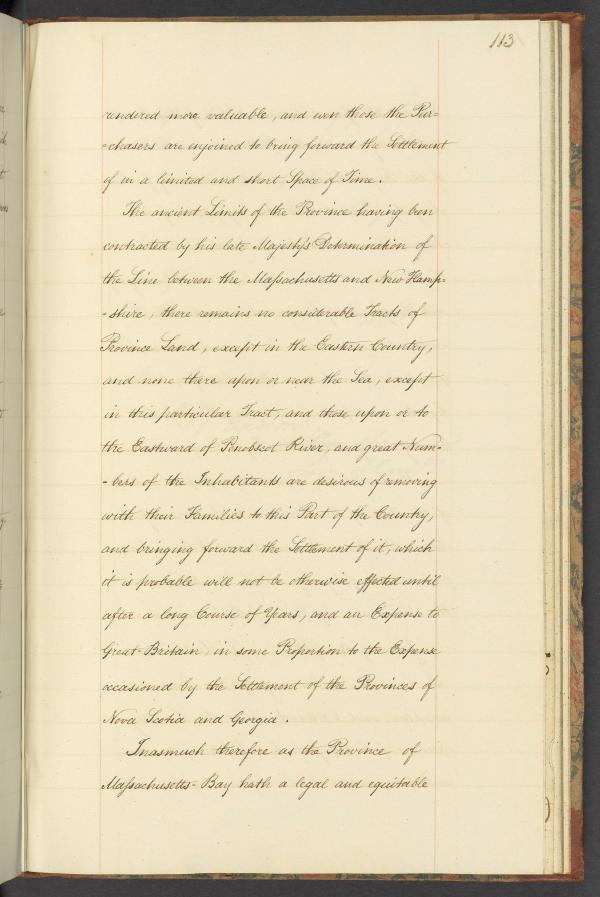 113
rendered more valuable, and even those the Pur=
=chasers are enjoined to bring forward the Settlement
of in a limited and short Space of Time.
The ancient Limits of the Province having been
contracted by his late Majesty's Determination of
the Line between the Massachusetts and New Hamp=
=shire, there remains no considerable Tracts of
Province Land, except in the Eastern Country,
and none there upon or near the Sea, except
in this particular Tract, and those upon or to
the Eastward of Penobscot River, and great Num=
=bers of the Inhabitants are desirous of removing
with their Families to this Part of the Country,
and bringing forward the Settlement of it, which
it is probable will not be otherwise effected until
after a long Course of Years, and an Expense to
Great-Britain, in some Proportion to the Expense
occasioned by the Settlement of the Provinces of
Nova Scotia and Georgia.
Inasmuch therefore as the Province of
Massachusetts-Bay hath a legal and equitable